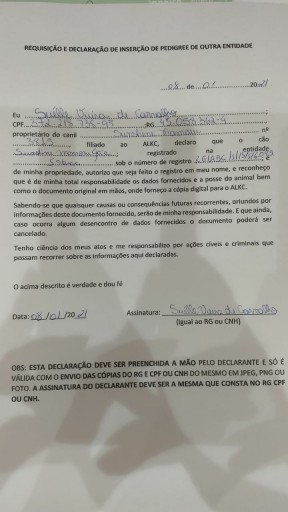 REQUISIÇÃO E DECLARAÇÃO DE INSERÇÃO DE PEDIGREE DE OUTRA ENTIDADE
08 de 01 2021
Eu
CPF RG
proprietário do canil nº
filiado ao ALKC, declaro que o cão
registrado na entidade
sob o número de registro é
de minha propriedade, autorizo que seja feito o registro em meu nome, e reconheço
que é de minha total responsabilidade os dados fornecidos e a posse do animal bem
como o documento original em mãos, onde forneço a cópia digital para o ALKC.
Sabendo-se que quaisquer causas ou consequências futuras recorrentes, oriundos por
informações deste documento fornecido, serão de minha responsabilidade. E que ainda,
caso ocorra algum desencontro de dados fornecidos o documento poderá ser
cancelado.
Tenho ciência dos meus atos e me responsabilizo por ações cíveis e criminais que
possam recorrer sobre as informações aqui declaradas.
O acima descrito é verdade e dou fé
Data: 08/01/2021 Assinatura:
(Igual ao RG ou CNH)
OBS: ESTA DECLARAÇÃO DEVE SER PREENCHIDA A MÃO PELO DECLARANTE E SÓ É
VÁLIDA COM O ENVIO DAS CÓPIAS DO RG E CPF OU CNH DO MESMO EM JPEG, PNG OU
FOTO. A ASSINATURA DO DECLARANTE DEVE SER A MESMA QUE CONSTA NO RG CPF
OU CNH.